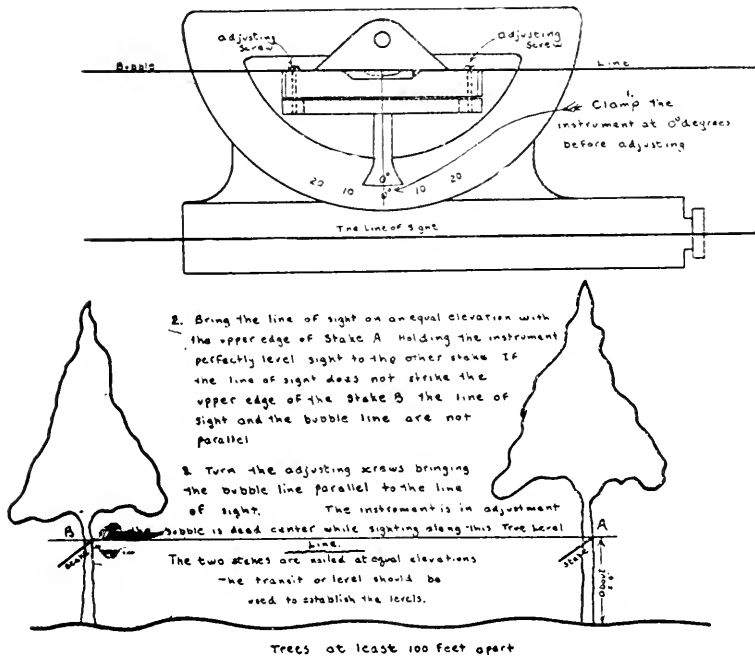 adjusting
screw
adjusting
screw
Bubble
Line
1.
Clamp the
instrument at 0° degrees
before adjusting
20 10 0° 10 20
0°
The Line of Sight
2. Bring the line of sight on an equal elevation with
the upper edge of Stake A Holding the instrument
perfectly level sight to the other stake If
the line of sight does not strike the
upper edge of the stake B the line of
sight and the bubble line are not
parallel
3. Turn the adjusting screws bringing
the bubble line parallel to the line
of sight. The instrument is in adjustment
the bubble is dead center while sighting along this True Level
Line.
B
A
Stake
Stake
The two stakes are nailed at equal elevations
The transit or level should be
used to establish the levels.
about
Trees at least 100 feet apart